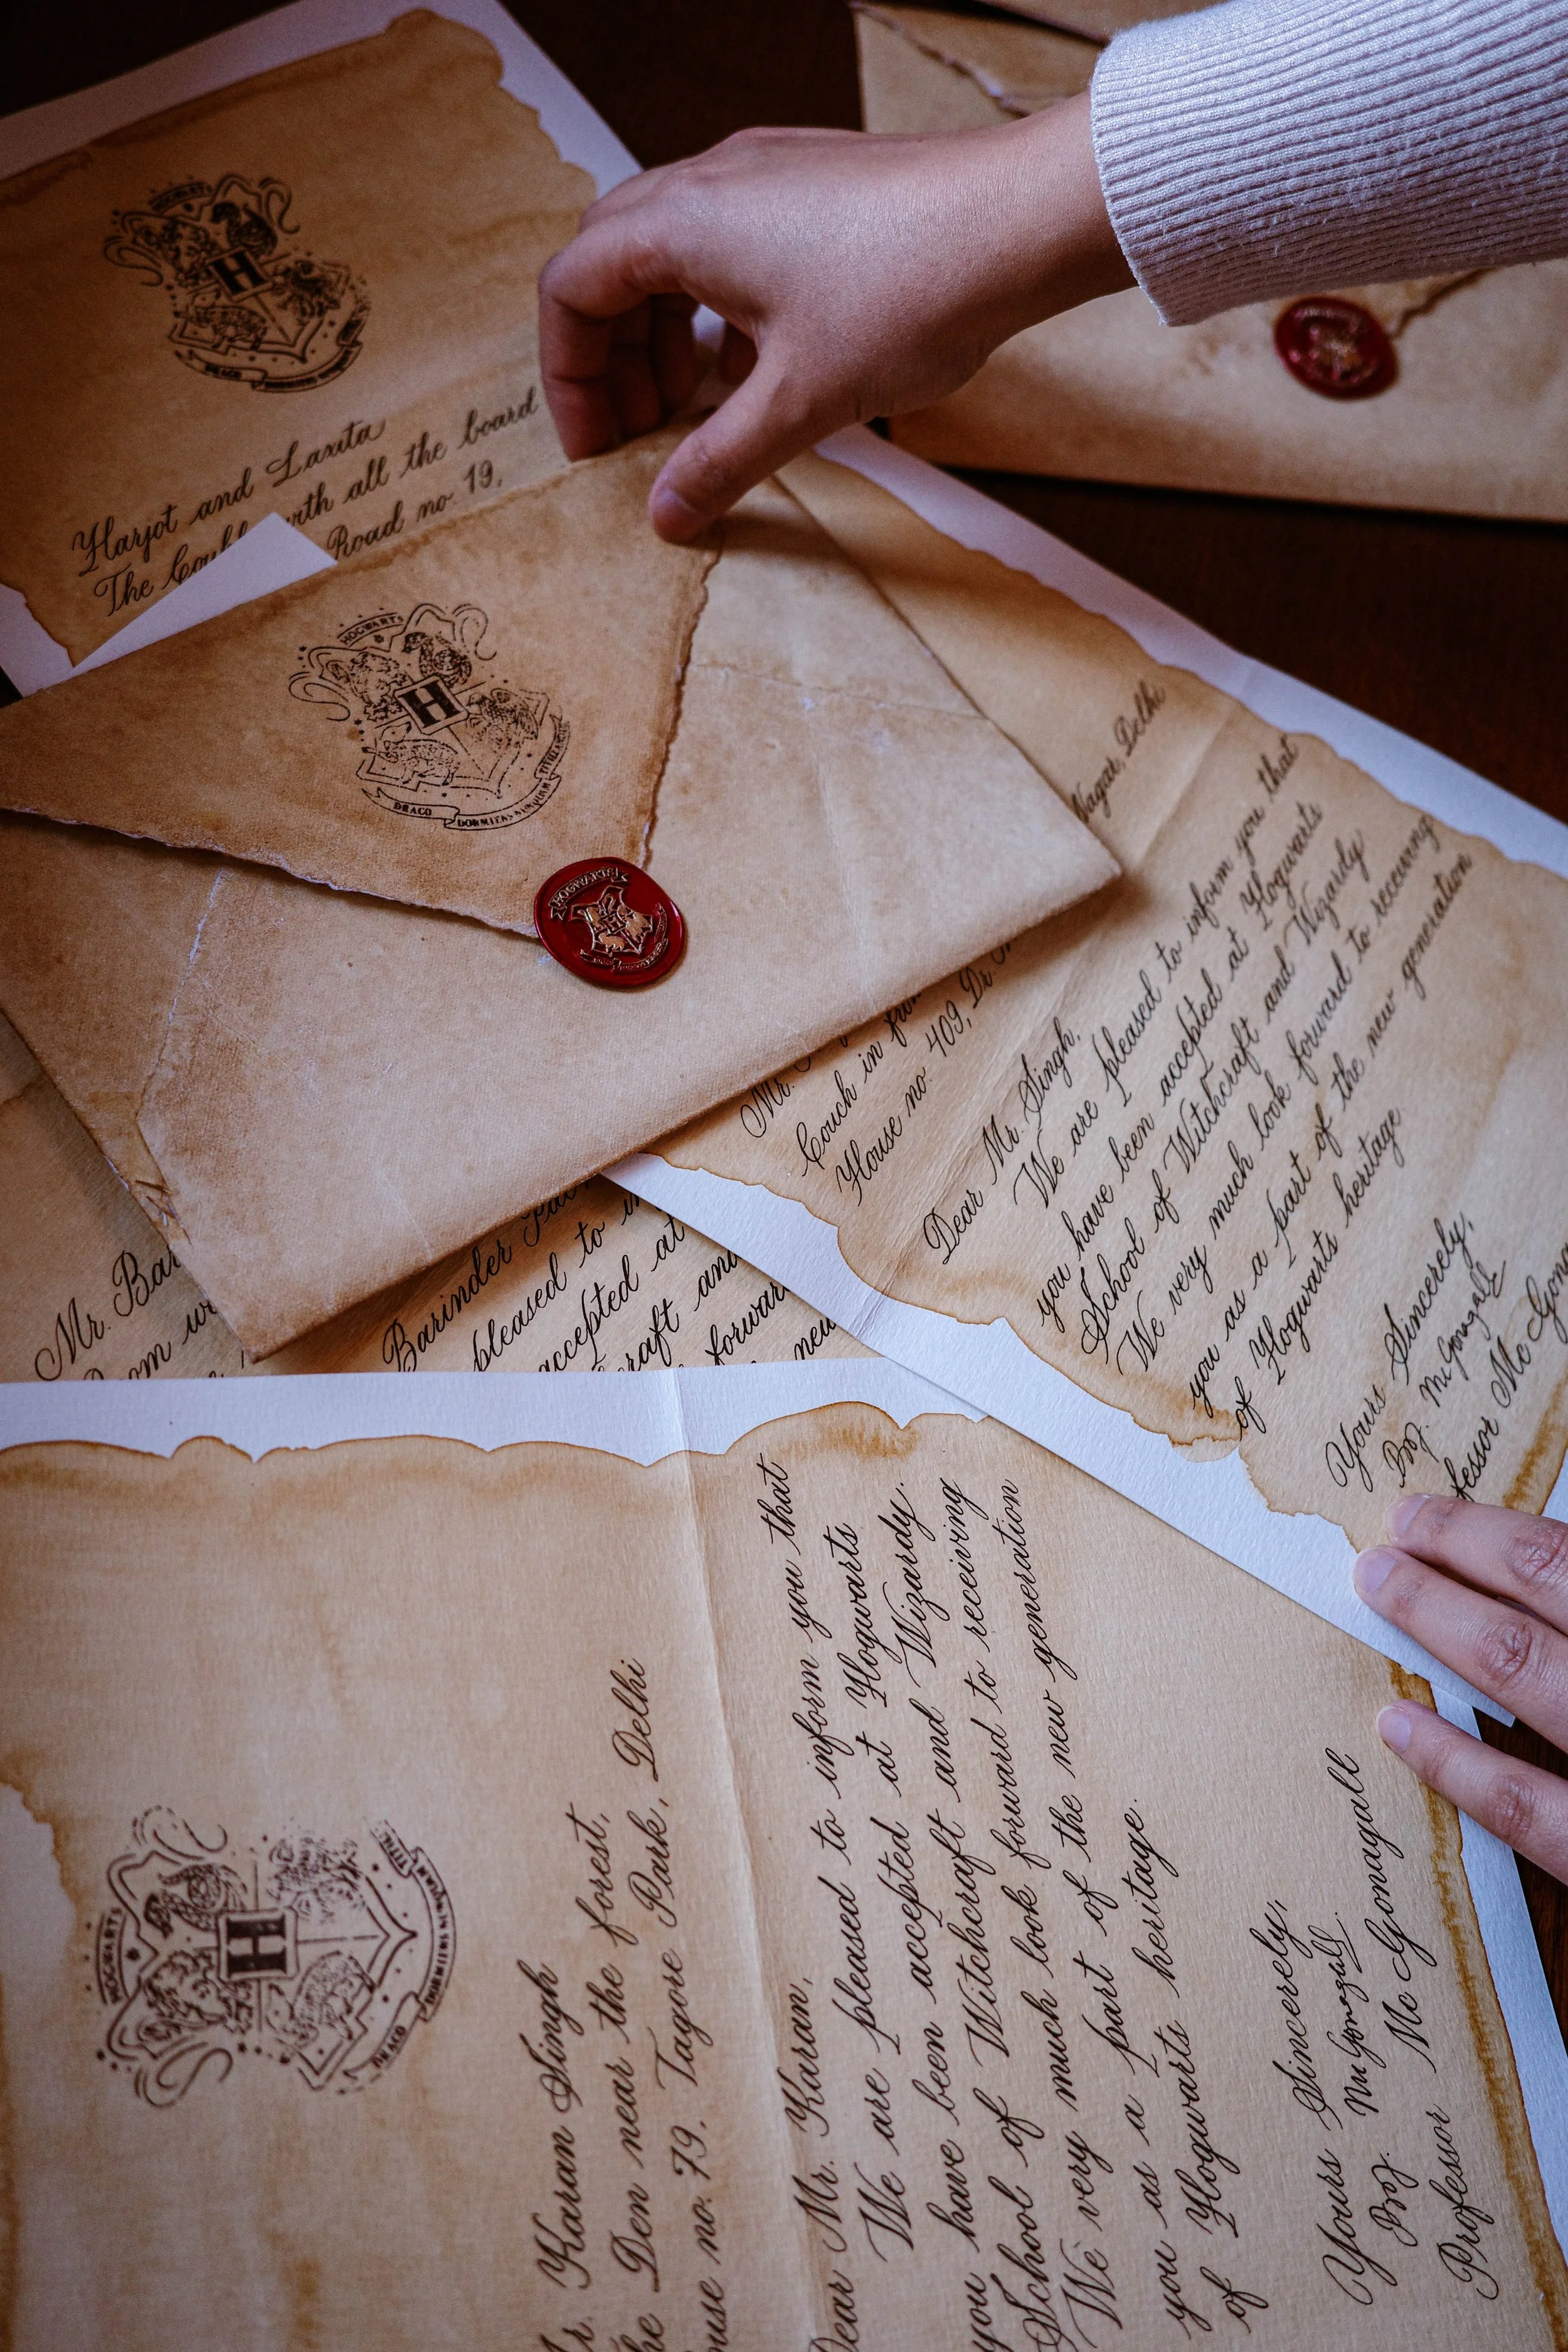 HOGWARTS
H
DRACO
Harjot and Laxita
The with all the board
Road no. 19,
HOGWARTS
H
DRACO DORMIENS NUNQUAM TITILLANDUS
HOGWARTS
H
Nagar, Delhi
Mr.
Couch in
House no. 409, Dr.
Dear Mr. Singh,
We are pleased to inform you that
you have been accepted at Hogwarts
School of Witchcraft and Wizardy
We very much look forward to receiving
you as a part of the new generation
of Hogwarts heritage
Yours Sincerely,
Prof. McGonagall
fessor Mc Gona
Mr. Bar
om
Barinder
pleased to in
accepted at
craft and
forward
new
HOGWARTS
H
DRACO DORMIENS NUNQUAM TITIL
r. Karan Singh
he Den near the forest,
ouse no. 79, Tagore Park, Delhi
Dear Mr. Karan,
We are pleased to inform you that
you have been accepted at Hogwarts
School of Witchcraft and Wizardy.
We very much look forward to receiving
you as a part of the new generation
of Hogwarts heritage.
Yours Sincerely,
Prof. McGonagall
Professor Mc Gonagall